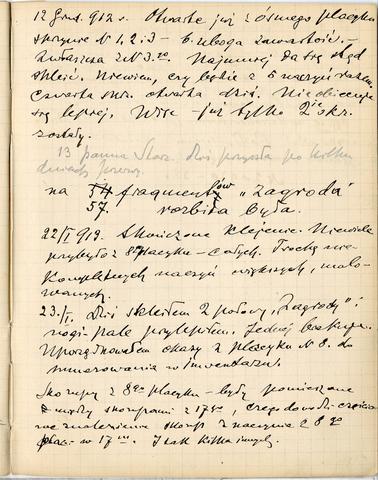 12 Grud. 912 r. Otwarte już z ósmego placyku
skrzynie N 1, 2 i 3 – b. uboga zawartość. –
zwłaszcza z N 3.
Najmniej da się stąd
skleić. Niewiem, czy będzie z 5 naczyń razem.
Czwarta skrz. otwarta dziś. Nie obiecuje
się lepiej. Więc – już tylko 2 skr.
zostały.
13 panna Star. Dziś przyszła po kilku
dniach przerwy.
na 54 fragmentów „Zagroda”
57. rozbita była.
22/I 913. Skończone klejenie. Niewiele
przybyło z 8 placyku – całych. Trochę nie-
kompletnych naczyń większych, malo-
wanych.
23./I. Dziś skleiłem 2 połowy „Zagrody” i
nogi-pale przylepiłem. Jednej brakuje.
Uporządkowałem okazy z placyku N 8. do
numerowania w inwentarzu.
Skorupy z 8go placyku – były pomieszane
między skorupami z 17go, czego dowodzi częściowe
znalezienie skorup z naczynia z 8go
plac. – w 17ym. I tak kilka innych.